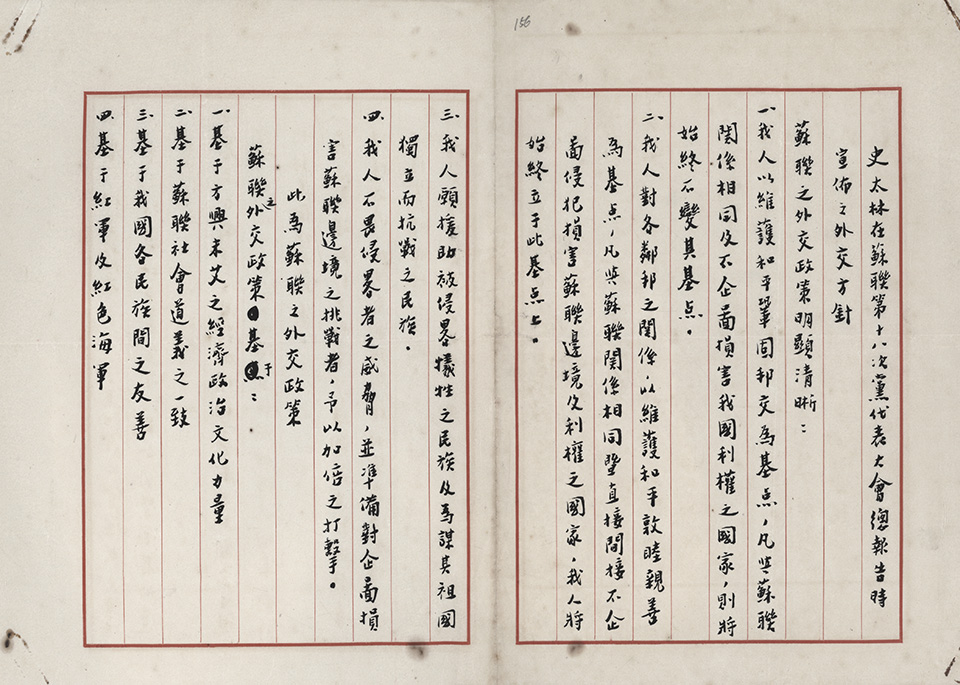 156
史太林在蘇聯第十八次黨代表大會總報告時
宣佈之外交方針
蘇聯之外交政策明顯清晰：
一、我人以維護和平鞏固邦交為基点，凡與蘇聯
関係相同及不企啚損害我國利權之國家，則將
始終不變其基点。
二、我人對各鄰邦之関係，以維護和平敦睦親善
為基点，凡與蘇聯関係相同曁直接間接不企
啚侵犯損害蘇聯邊境及利權之國家，我人將
始終立于此基点上。
三、我人願援助被侵畧犧牲之民族及為謀其祖國
獨立而抗戰之民族。
四、我人不畏侵畧者之威脅，並準備對企啚損
害蘇聯邊境之挑戰者，予以加倍之打擊。
此為蘇聯之外交政策
蘇聯之外交政策基于：
一、基于方興未艾之經濟政治文化力量
二、基于蘇聯社會道義之一致
三、基于我國各民族間之友善
四、基于紅軍及紅色海軍